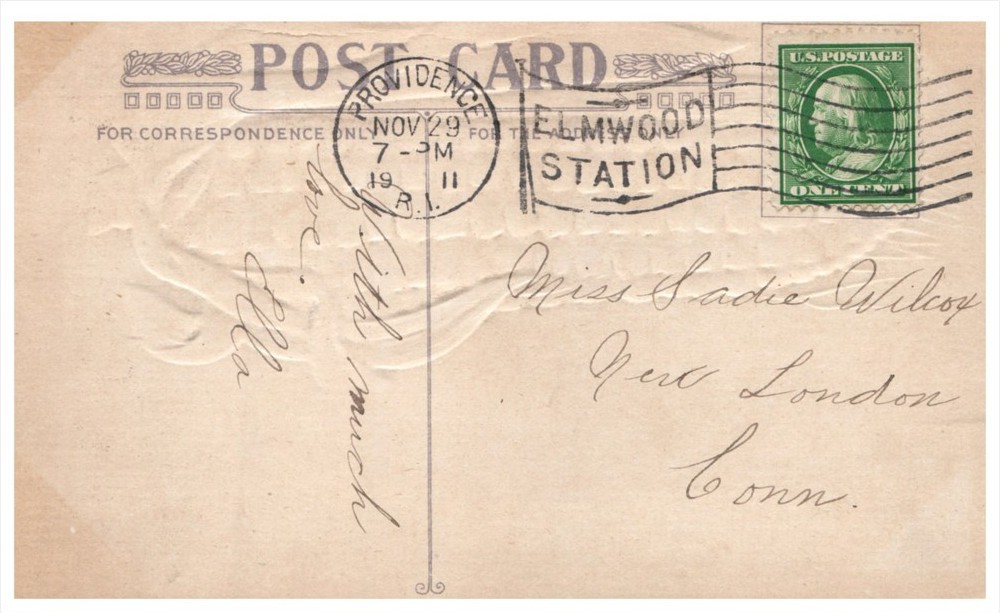 POST CARD
FOR CORRESPONDENCE ONLY
FOR THE ADDRESS ONLY
PROVIDENCE
NOV 29
7-PM
19 11
R.I.
ELMWOOD
STATION
U.S.POSTAGE
ONE CENT
With much
love.
Ella
Miss Sadie Wilcox
New London
Conn.